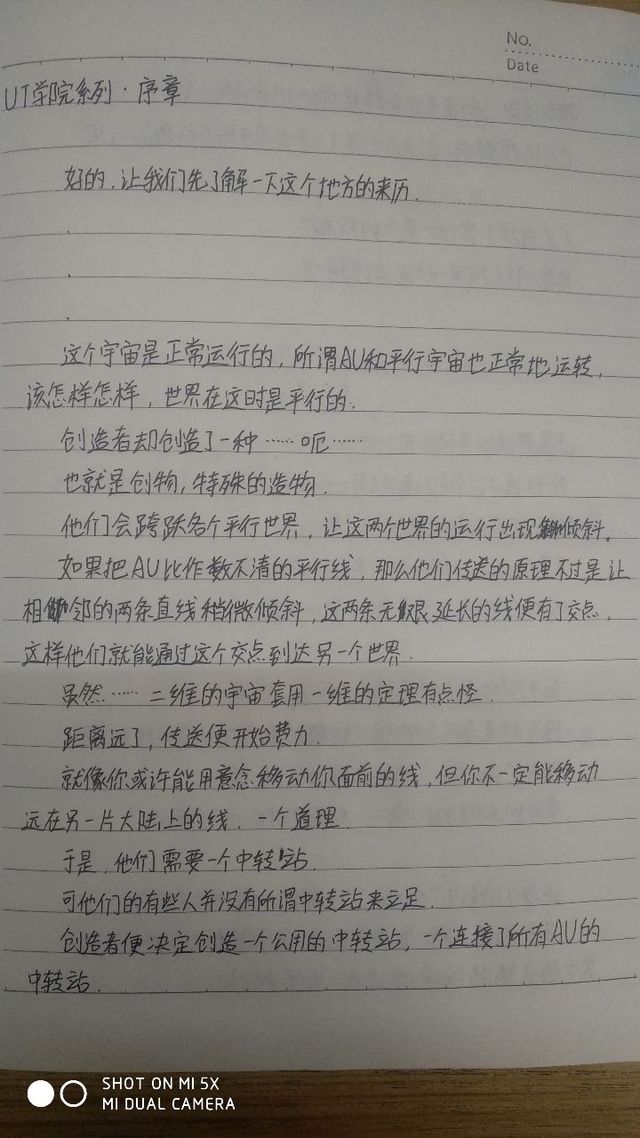 No.
Date
UT学院系列·序章
好的,让我们先了解一下这个地方的来历.
.
.
这个宇宙是正常运行的,所谓AU和平行宇宙也正常地运转,
该怎样怎样,世界在这时是平行的.
创造者却创造了一种……呃……
也就是创物,特殊的造物.
他们会跨跃各个平行世界,让这两个世界的运行出现倾斜.
如果把AU比作数不清的平行线,那么他们传送的原理不过是让
相邻的两条直线稍微倾斜,这两条无限延长的线便有了交点,
这样他们就能通过这个交点到达另一个世界.
虽然……二维的宇宙套用一维的定理有点怪.
距离远了,传送便开始费力.
就像你或许能用意念移动你面前的线,但你不一定能移动
远在另一片大陆上的线.一个道理.
于是,他们需要一个中转站.
可他们的有些人并没有所谓中转站来立足.
创造者便决定创造一个公用的中转站,一个连接了所有AU的
中转站.
SHOT ON MI 5X
MI DUAL CAMERA